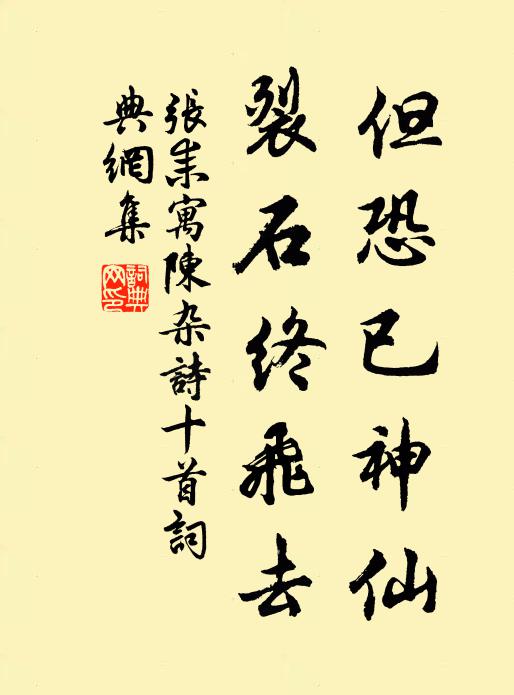 但恐已神仙
裂石终飛去
張耒寓陳杂詩十首詞
典網集
詞典
网印